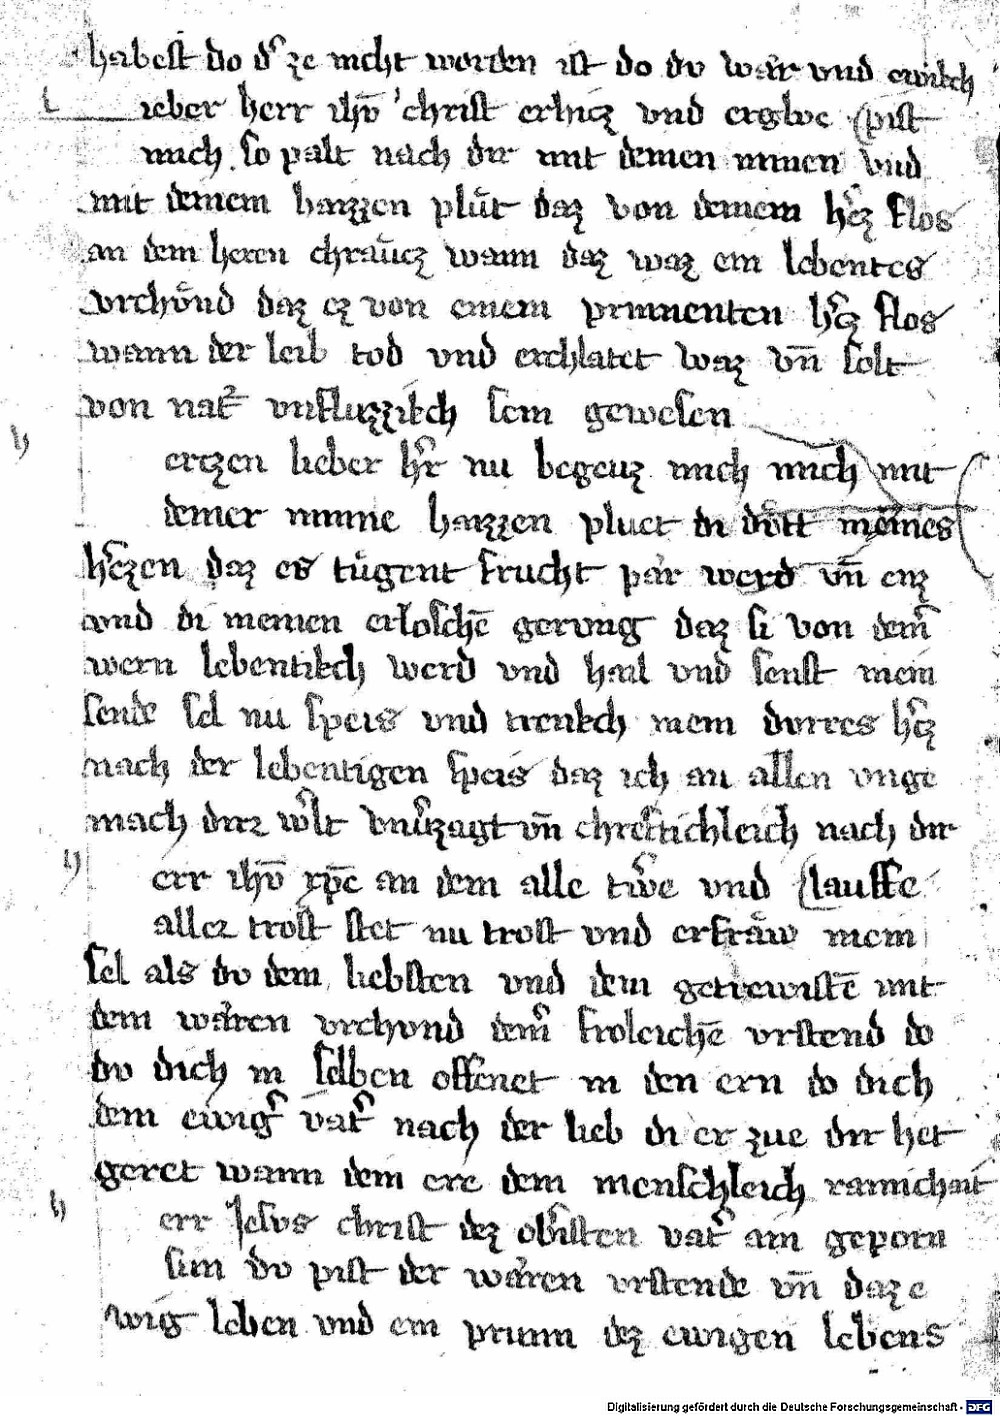 habest do dͤ ze nicht worden ist do du war und ewikch
ieber herr ihū christ erhicz vnd erglue pist
mich so palt nach dir mit deinen minnen vnd
mit deinem haizzen pluͤt daz von deinem hͤcz flos
an dem heren chraͤucz wann daz waz ein lebentes
vrchuͤnd daz ez von einem prinnenten hͤcz flos
wann der leib tod vnd erchlatet waz vn̄ solt
von natͬ vnfluzzikch sein gewesen
erczen lieber hͤr nu begeuz mich mich mit
deiner minne haizzen pluet di duͤrr meines
hͤczen daz es tuͤgent frucht par werd vn̄ enz
vnd di meinen erloschē gerung daz si von deinͤ
wern lebentikch werd vnd hail vnd senft mein
sende sel nu speis vnd trenkch mein durres hͤcz
nach der lebentigen speis daz ich an allen vnge
mach dirr wͤlt vnuͤrzagt vn̄ chreftichleich nach dir
err ihū xp̄e an dem alle trͤwe vnd lauffe
aller trost stet nu trost vnd erfraͤw mein
sel als du dem liebsten vnd dem getrewistē mit
dem waren vrchund deinͤ froleichē vrstend do
du dich in selben offenet in den ern do dich
dem ewigͤ vatͤ nach der lieb di er zue dir het
geret wann dem ere dem menschleich
err Jesus christ dez obͤisten vatͤ ain geporn
sun du pist der waren vrstende vn̄ daz e
wig leben vnd ein prunn dez ewigen lebens
Digitalisierung gefördert durch die Deutsche Forschungsgemeinschaft - DFG